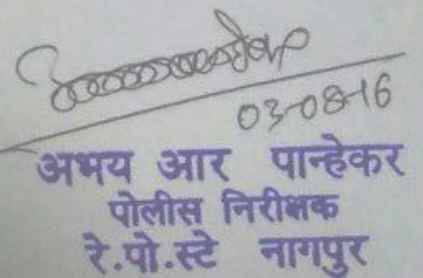 03-08-16
अभय आर पान्हेकर
पोलीस निरीक्षक
रे.पो.स्टे नागपुर